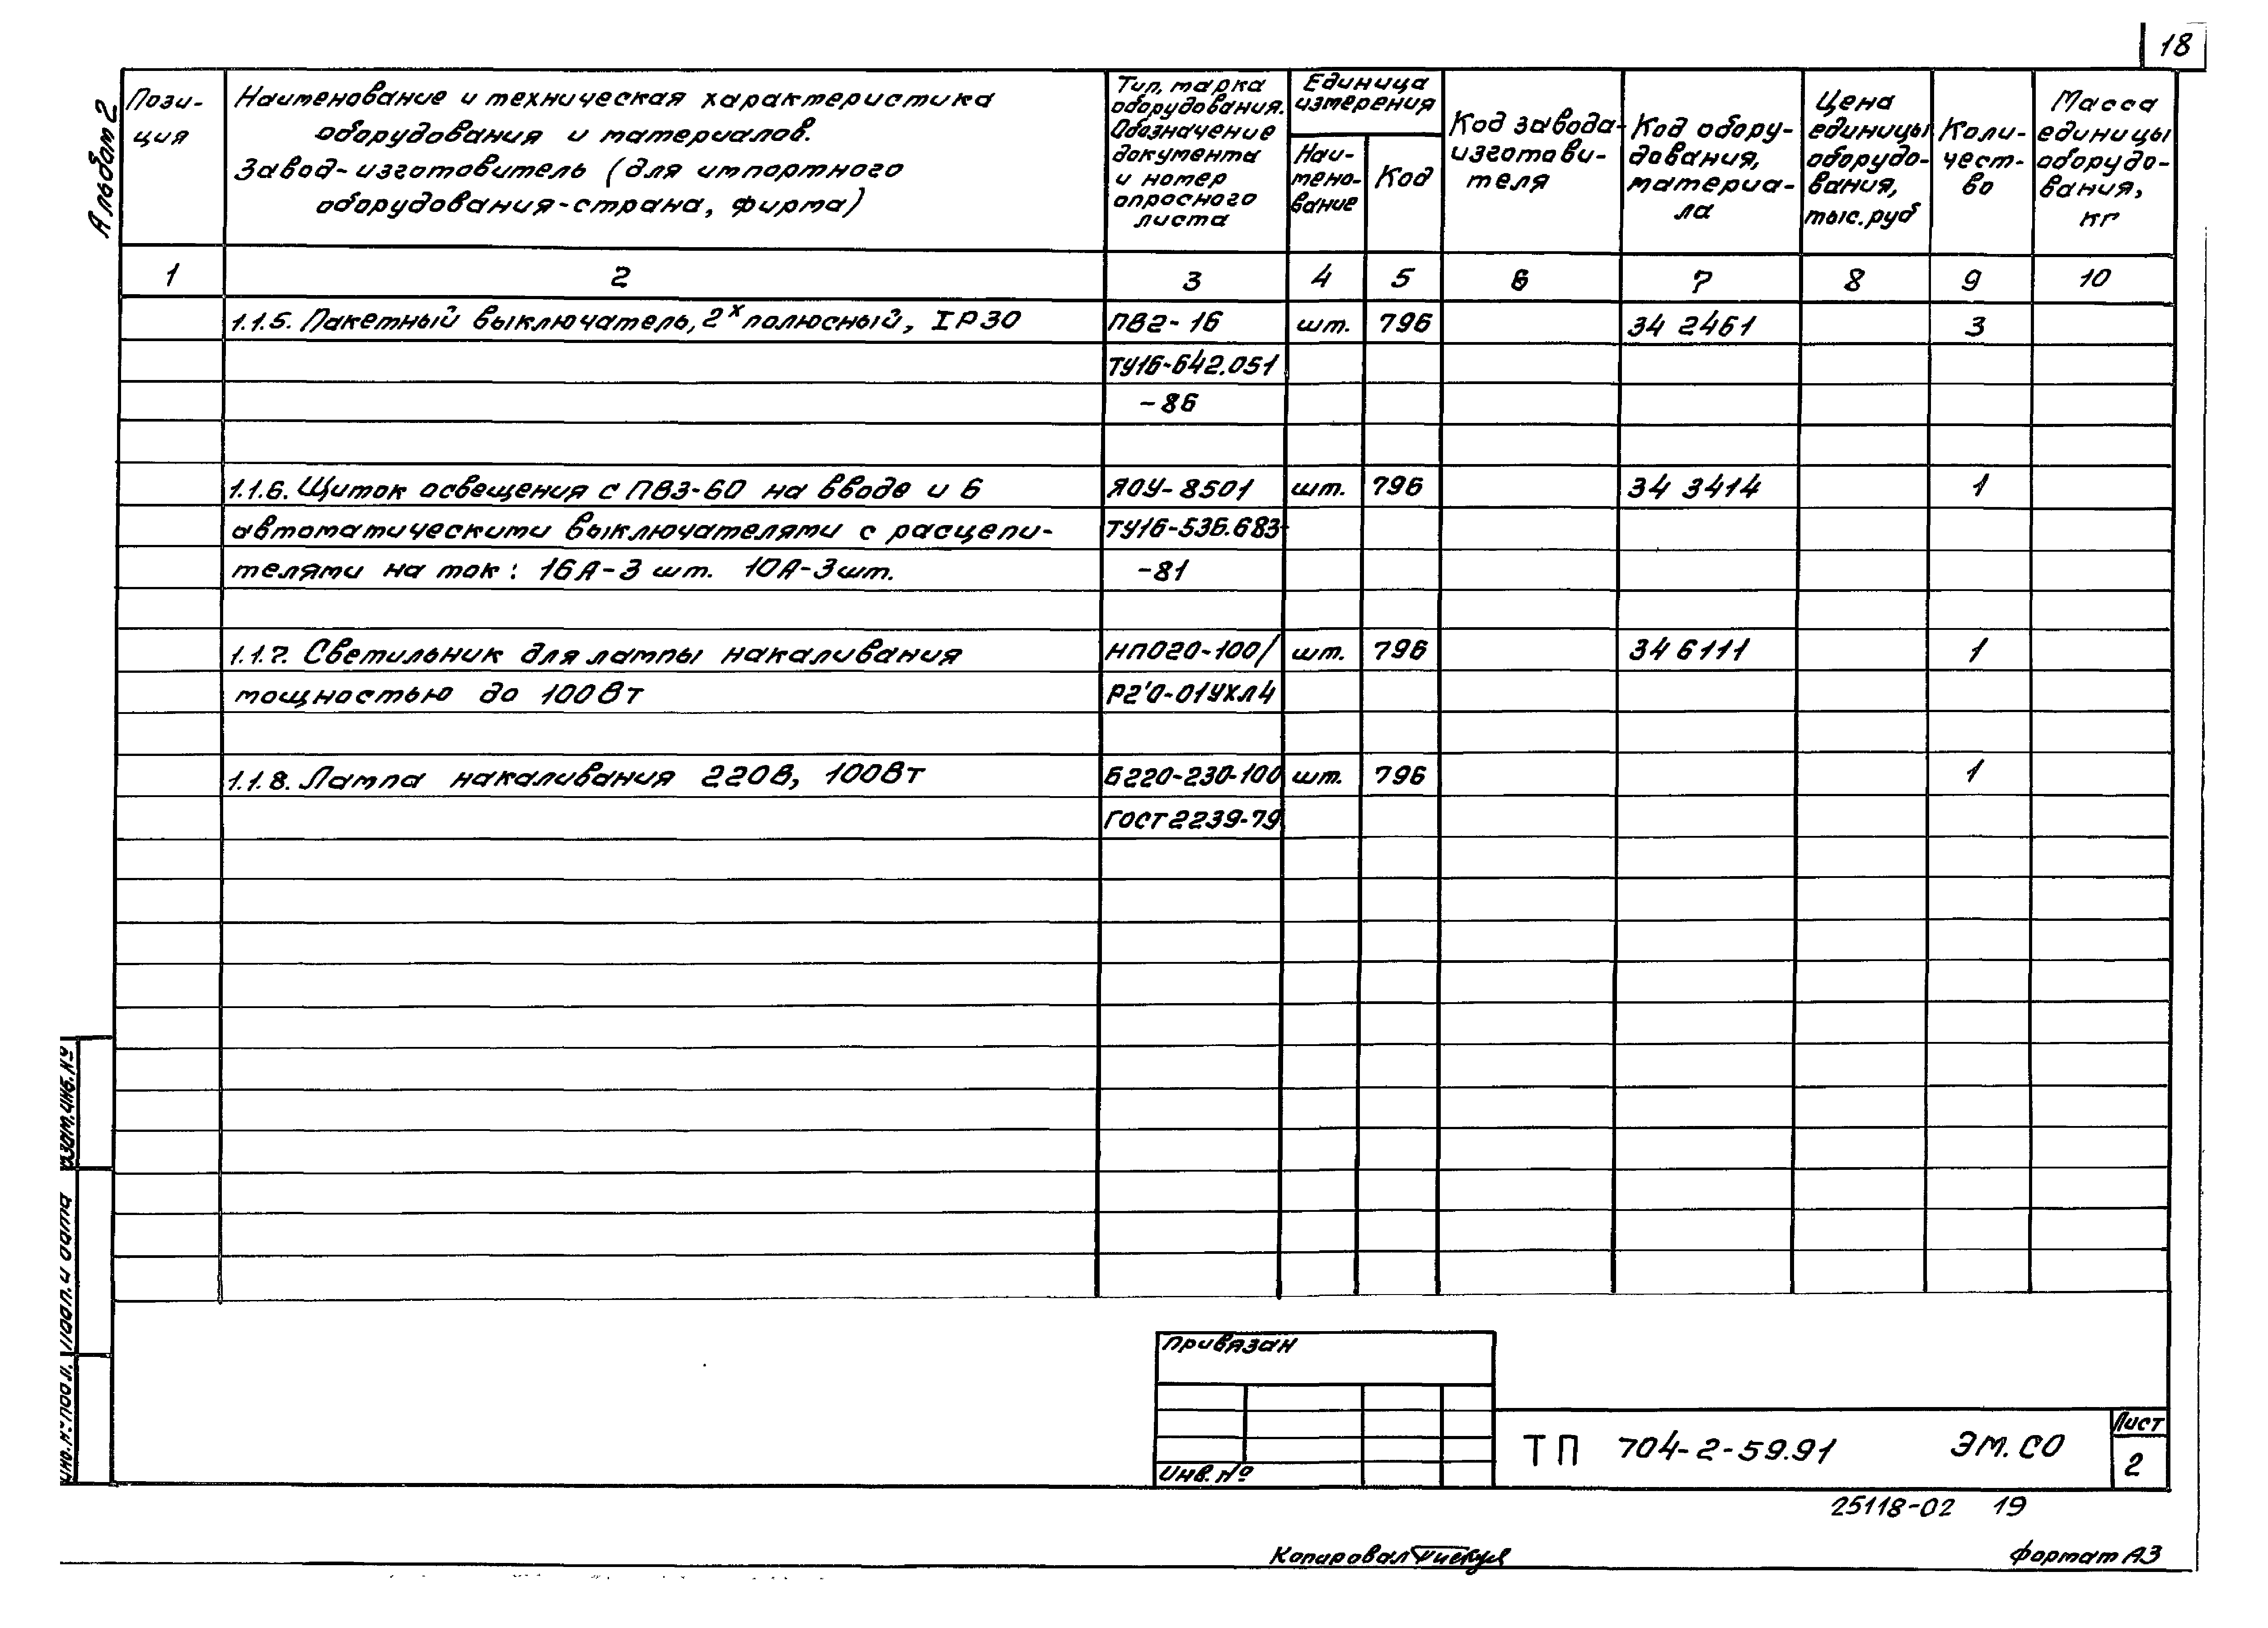 18
Альбом 2
Пози-
ция
Наименование и техническая характеристика
оборудования и материалов.
Завод-изготовитель (для импортного
оборудования-страна, фирма)
Тип, марка
оборудования.
Обозначение
документа
и номер
опросного
листа
Единица
измерения
Наи-
мено-
вание
Код
Код завода-
изготови-
теля
Код обору-
дования,
материа-
ла
Цена
единицы
оборудо-
вания,
тыс.руб
Коли-
чест-
во
Масса
единицы
оборудо-
вания,
кг
1 2 3 4 5 6 7 8 9 10
1.1.5. Пакетный выключатель, 2х полюсный, IP30 ПВ2-16 шт. 796 34 2461 3
ТУ16-642.051
-86
1.1.6. Щиток освещения с ПВ3-60 на вводе и 6 ЯОУ-8501 шт. 796 34 3414 1
автоматическими выключателями с расцепи- ТУ16-536.683-
телями на ток: 16А-3 шт. 10А-3шт. -81
1.1.7. Светильник для лампы накаливания НПО20-100/ шт. 796 34 6111 1
мощностью до 100Вт Р2'0-01УХЛ4
1.1.8. Лампа накаливания 220В, 100Вт Б220-230-100 шт. 796 1
ГОСТ2239-79
Взам.инв.№
Подп. и дата
Инв.№ подл.
Привязан
Инв.№
ТП 704-2-59.91 ЭМ.СО
Лист
2
25118-02 19
Копировал
Формат А3